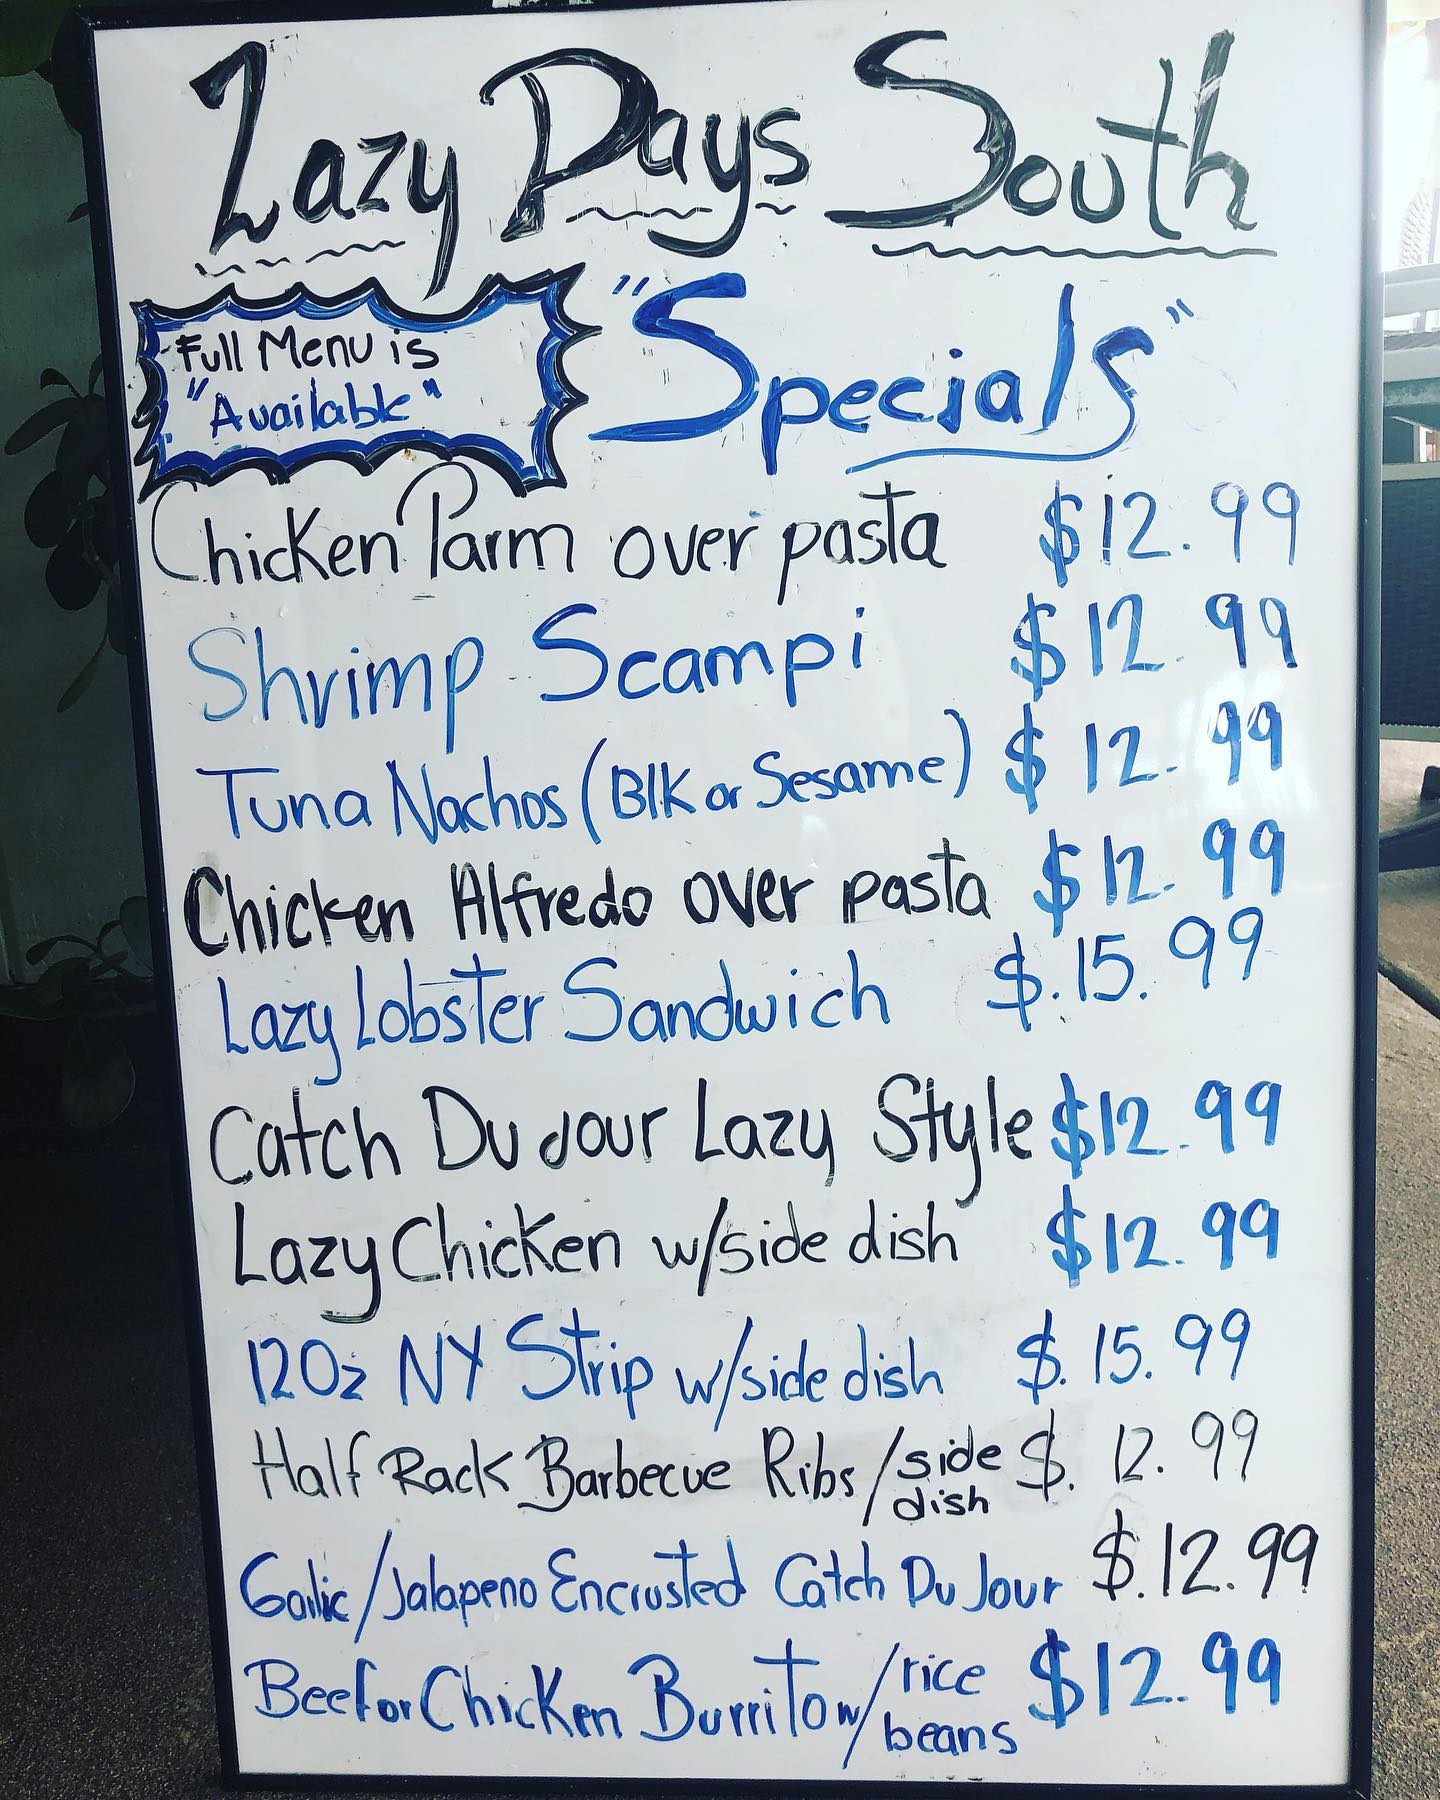 Lazy Days South
Full Menu is
"Available"
"Specials"
Chicken Parm over pasta $12.99
Shrimp Scampi $12.99
Tuna Nachos (Blk or Sesame) $12.99
Chicken Alfredo over pasta $12.99
Lazy Lobster Sandwich $.15.99
Catch Du Jour Lazy Style $12.99
Lazy Chicken w/side dish $12.99
12Oz NY Strip w/side dish $.15.99
Half Rack Barbecue Ribs/side dish $.12.99
Garlic/Jalapeno Encrusted Catch Du Jour $.12.99
Beef or Chicken Burrito w/rice beans $12.99